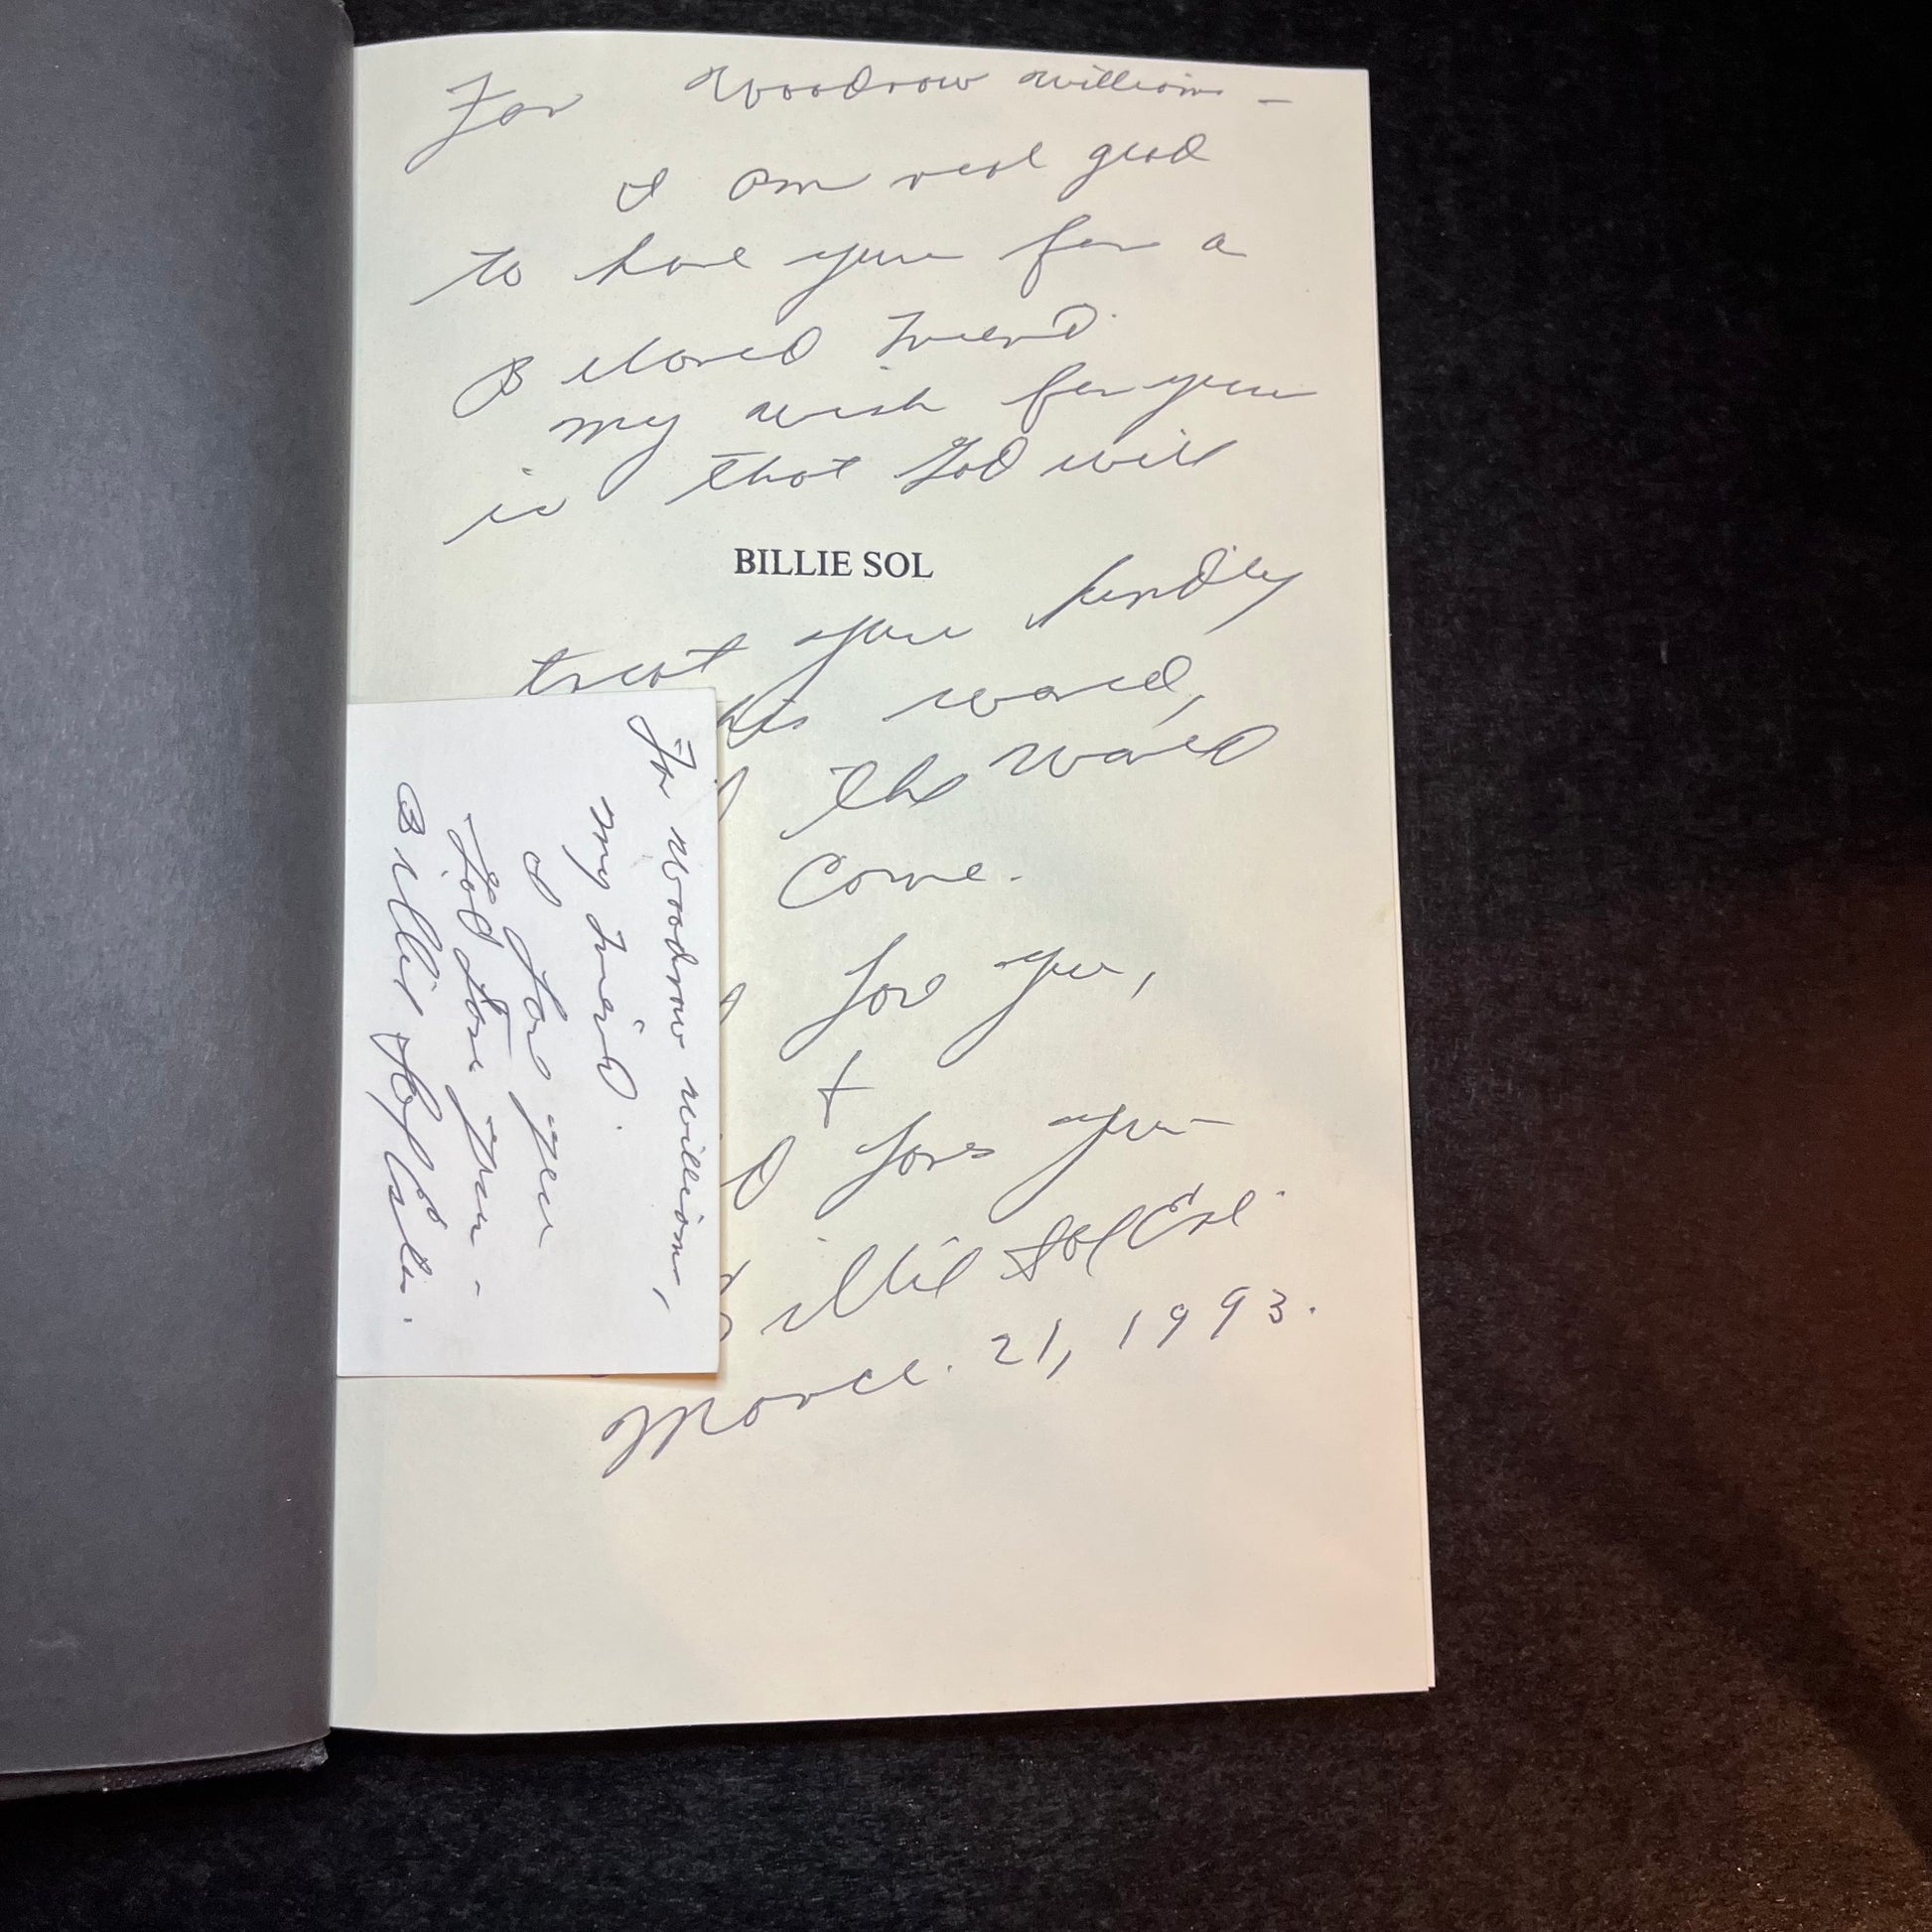 For Woodrow Williams –
I am real glad
to have you for a
Beloved Friend.
my wish for you
is that God will
BILLIE SOL
treat you kindly
this world,
the world
Come.
love you,
+
loves you –
Billie Sol Estes
March 21, 1993.
For Woodrow Williams,
my Friend.
I love you
God Love you –
Billie Sol Estes.